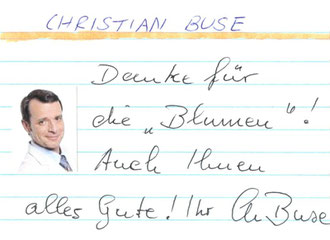 CHRISTIAN BUSE
Danke für
die „Blumen“!
Auch Ihnen
alles Gute! Ihr Ch Buse